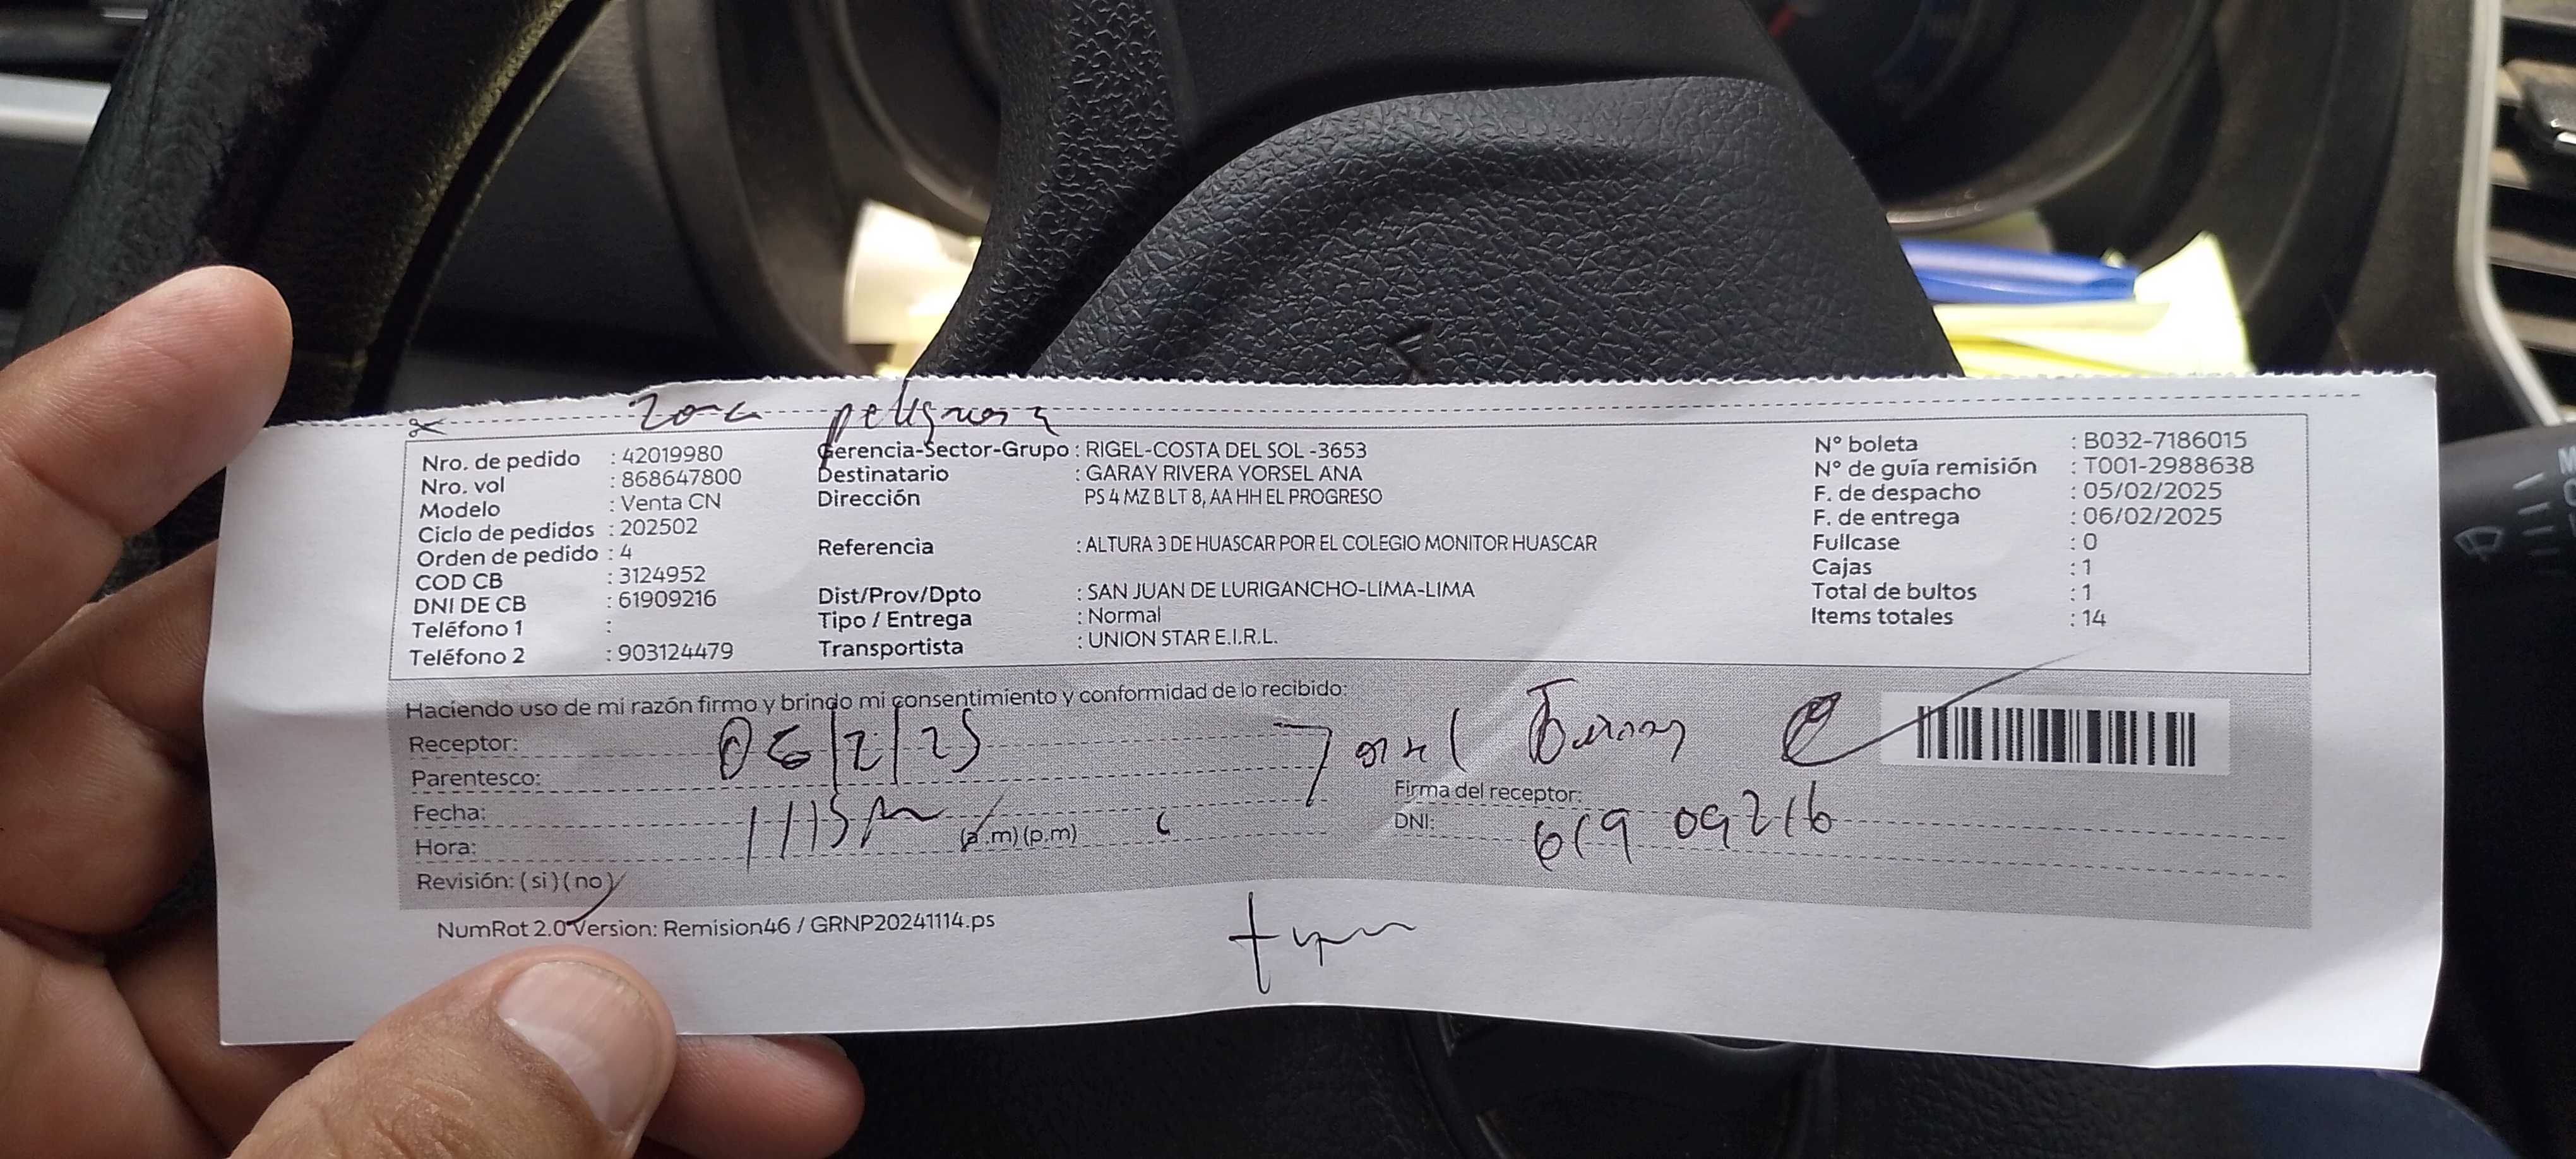 zona peligrosa
Nro. de pedido : 42019980
Nro. vol : 868647800
Modelo : Venta CN
Ciclo de pedidos : 202502
Orden de pedido : 4
COD CB : 3124952
DNI DE CB : 61909216
Teléfono 1 :
Teléfono 2 : 903124479
Gerencia-Sector-Grupo : RIGEL-COSTA DEL SOL -3653
Destinatario : GARAY RIVERA YORSEL ANA
Dirección PS 4 MZ B LT 8, AA HH EL PROGRESO
Referencia : ALTURA 3 DE HUASCAR POR EL COLEGIO MONITOR HUASCAR
Dist/Prov/Dpto : SAN JUAN DE LURIGANCHO-LIMA-LIMA
Tipo / Entrega : Normal
Transportista : UNION STAR E.I.R.L.
N° boleta : B032-7186015
N° de guía remisión : T001-2988638
F. de despacho : 05/02/2025
F. de entrega : 06/02/2025
Fullcase : 0
Cajas : 1
Total de bultos : 1
Items totales : 14
Haciendo uso de mi razón firmo y brindo mi consentimiento y conformidad de lo recibido:
Receptor: 06/2/25
Parentesco:
Fecha:
Hora: (a.m) (p.m)
Revisión: (si) (no)
Firma del receptor:
DNI: 61909216
NumRot 2.0 Version: Remision46 / GRNP20241114.ps